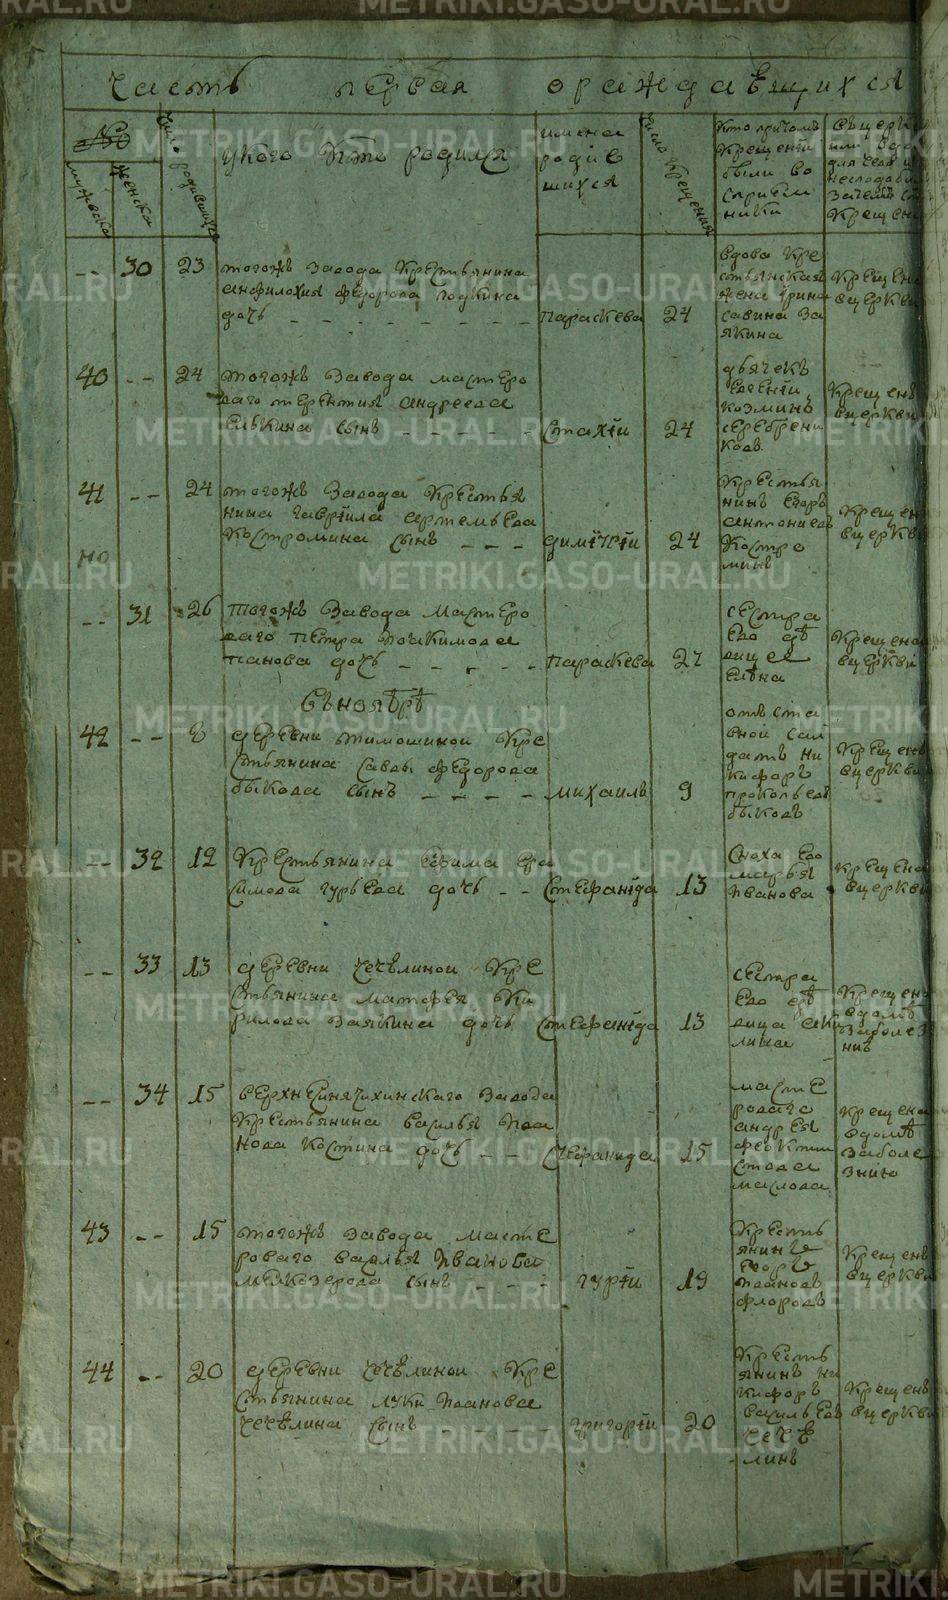 часть первая ораждавщихся
№
мужеска
женска
число родившихся
укого кто родился
имена
родів
шихся
число крещения
кто причомъ
крещеніи
были во
спріем
ники
крещен
-- 30 23 тогожъ завода крестьянина
анфилохия федорова
дочь - - - - - - - параскева 24
вдова кре
стьянская
жена ірина
савина за
якина
крещена
вцеркви
40 -- 24 тогожъ завода мастеро
ваго терентия андреева
елькина сынъ - - - - - стахіи 24
дьячекъ
евгеніи
козминъ
серебрени
ковъ
крещенъ
вцеркви
41 -- 24 тогожъ завода крестья
нина гавріила артемьева
костромина сынъ - - - димітріи 24
крестья
нинъ егоръ
антониевъ
костро
минъ
крещен
вцеркви
но
-- 31 26 тогожъ завода мастеро
ваго петра
панова дочь - - - - - параскева 27
сестра
ево дѣ
вица
елѣна
крещена
вцеркви
Съноябрѣ
42 -- 8 деревни тимошиной кре
стьянина савы федорова
быкова сынъ - - - - михаилъ 9
отъ ста
вной сал
датъ ни
кифоръ
прокопьевъ
быковъ
крещенъ
вцеркви
-- 32 12 крестьянина ефима гра
симова гурьева дочь - - стефаніда 13
сноха ево
марья
иванова
крещена
вцеркви
-- 33 13 деревни чечѣлиной кре
стьянина матфея ки
рилова заякина дочь стефаніда 13
сестра
ево дѣ
вица аки
лина
крещен
вдомѣ
заболез
нию
-- 34 15 верхнесинячихинскаго завода
крестьянина василья ива
нова костина дочь - - стефанида 15
масте
роваго
андрея
феокти
стова
маслова
крещена
вдомѣ
заболе
знию
43 -- 15 тогожъ завода масте
роваго василья иванова
мелкозерова сынъ - - - гурій 19
кресть
янинъ
егоръ
ивановъ
флоровъ
крещенъ
вцеркви
44 -- 20 деревни чечѣлиной кре
стьянина луки иванова
чечѣлина сынъ - - - - - григоріи 20
кресть
янинъ ни
кифоръ
васильевъ
чечѣ
линъ
крещенъ
вцеркви
METRIKI.GASO-URAL.RU